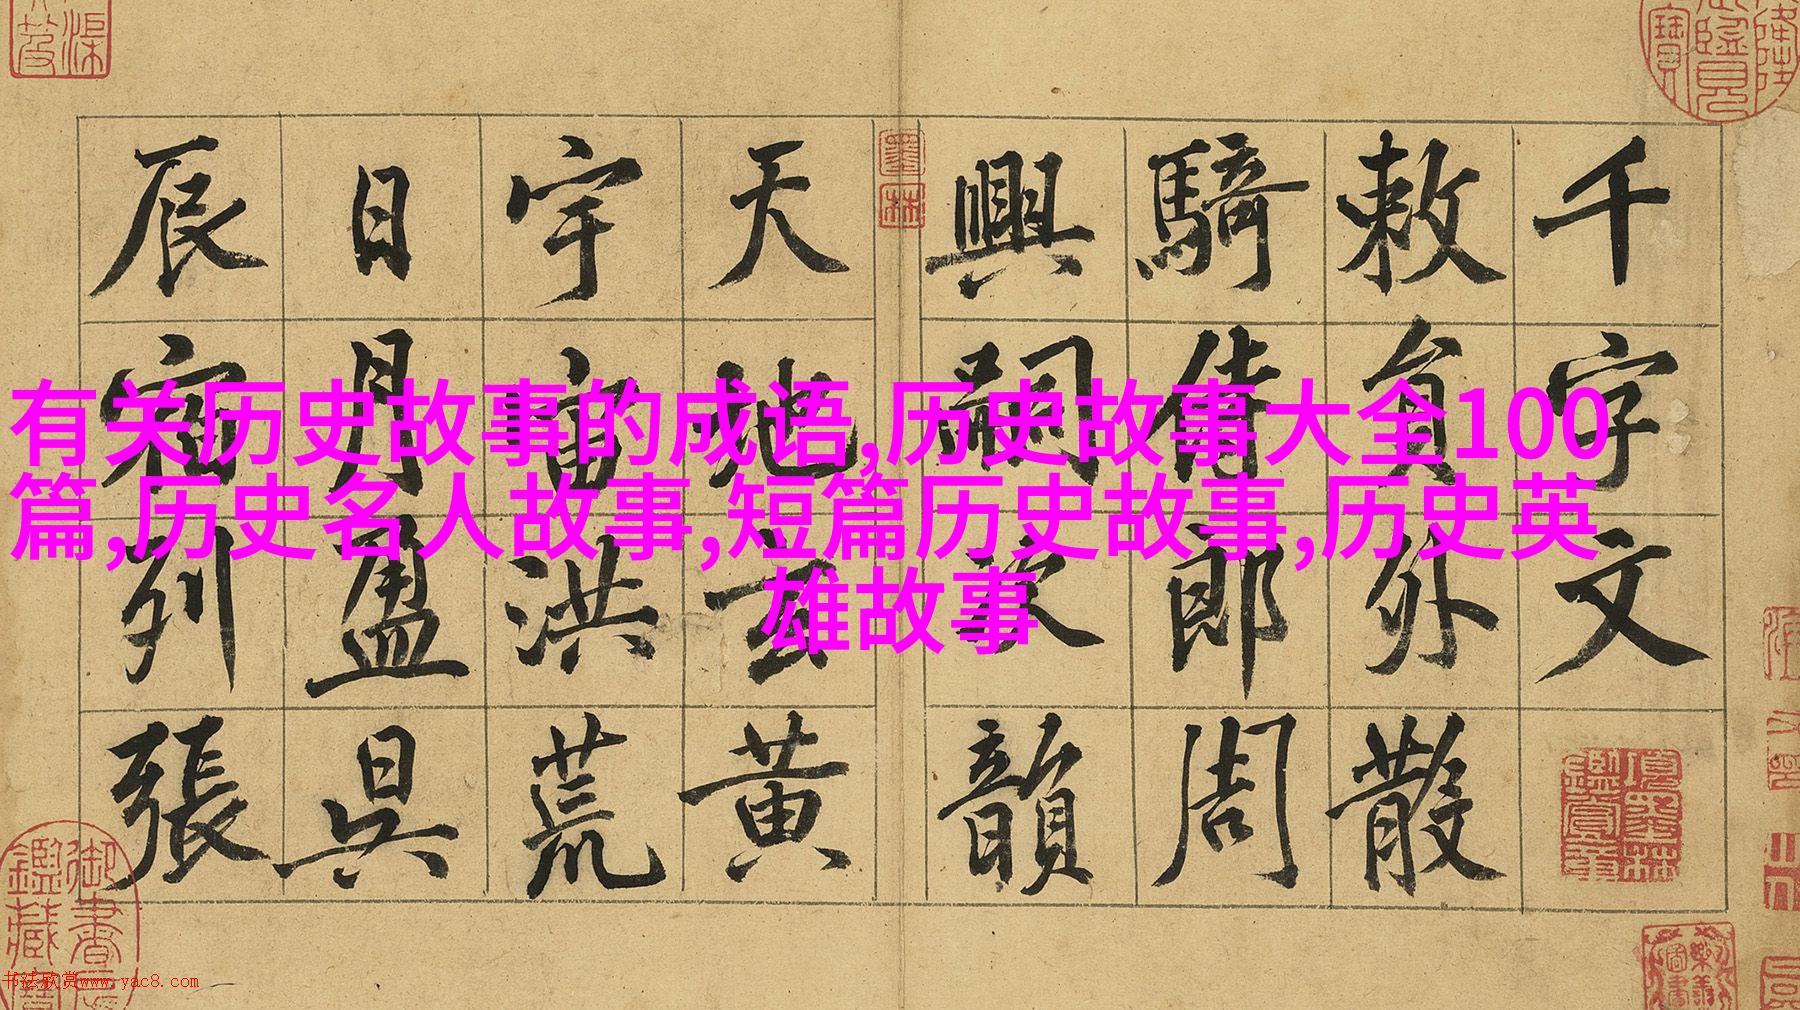 有关历史故事的成语,历史故事大全100
篇,历史名人故事,短篇历史故事,历史英
雄故事
千字文
敕員外散
騎侍郎周
興嗣次韻
天地玄黄
宇宙洪荒
日月盈昃
辰宿列張
墨林
项墨林鑑賞章
书法欣赏www.yac8.com